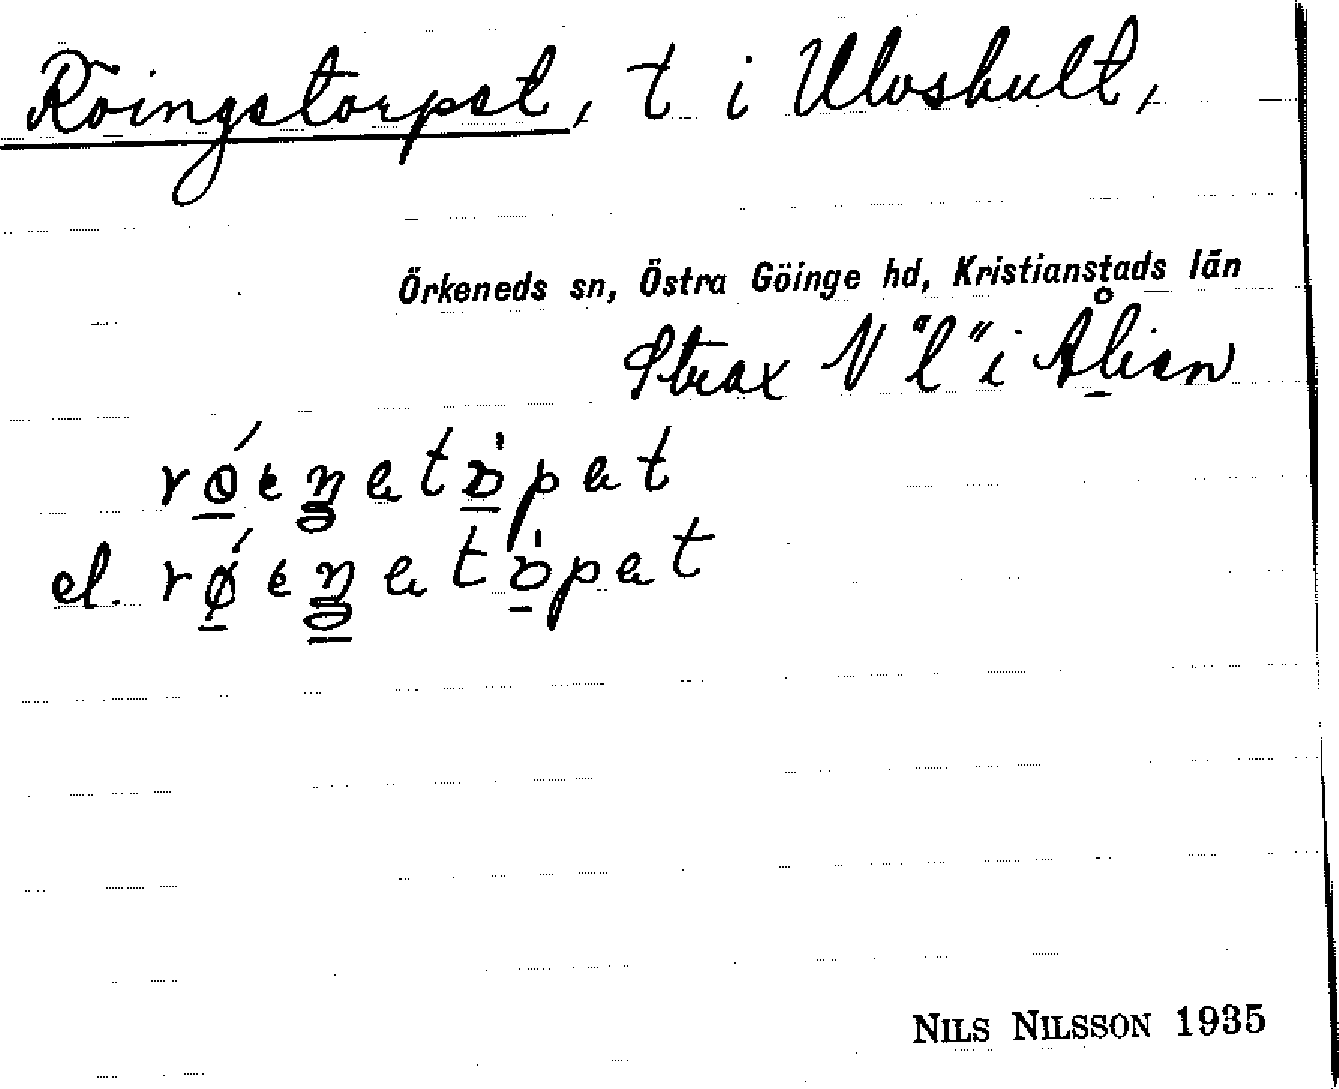 Röingatorpet, t i Ulvshult,
Örkeneds sn, Östra Göinge hd, Kristianstads län
Strax V "l" i Ålian
el.
NILS NILSSON 1935